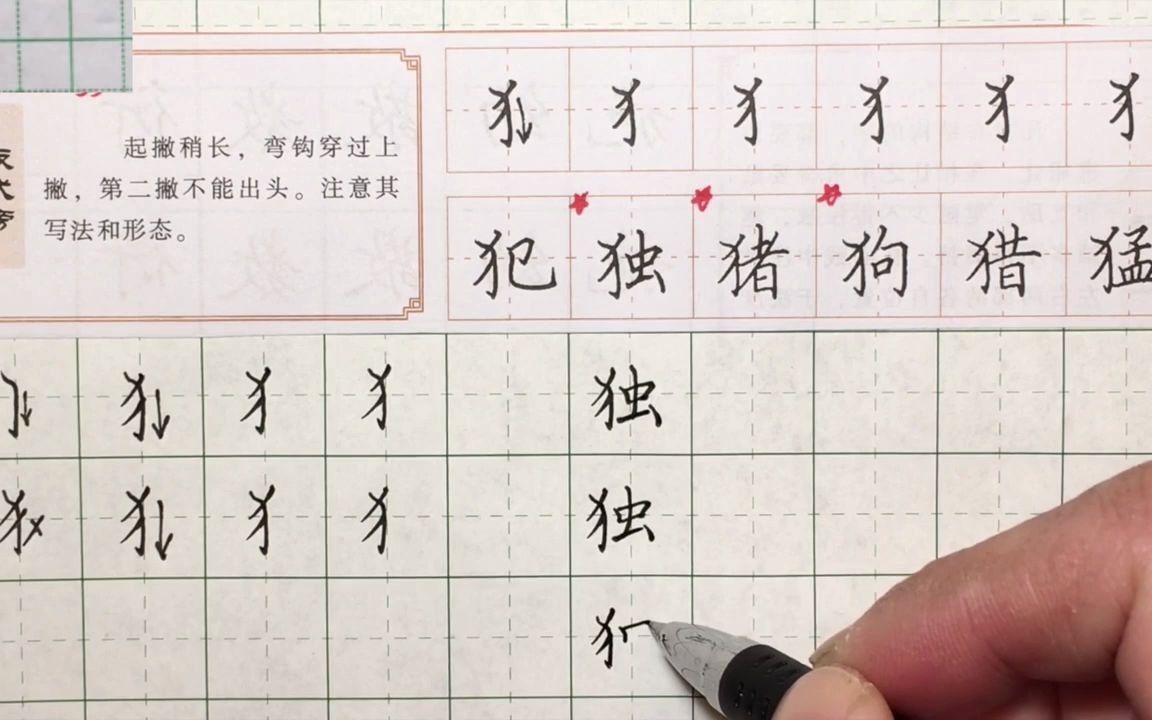 起撇稍长，弯钩穿过上
撇，第二撇不能出头。注意其
写法和形态。
犭 犭 犭 犭 犭 犭
犯 独 猪 狗 猎 猛
犭 犭 犭 独
犭 犭 犭 犭 独
犭